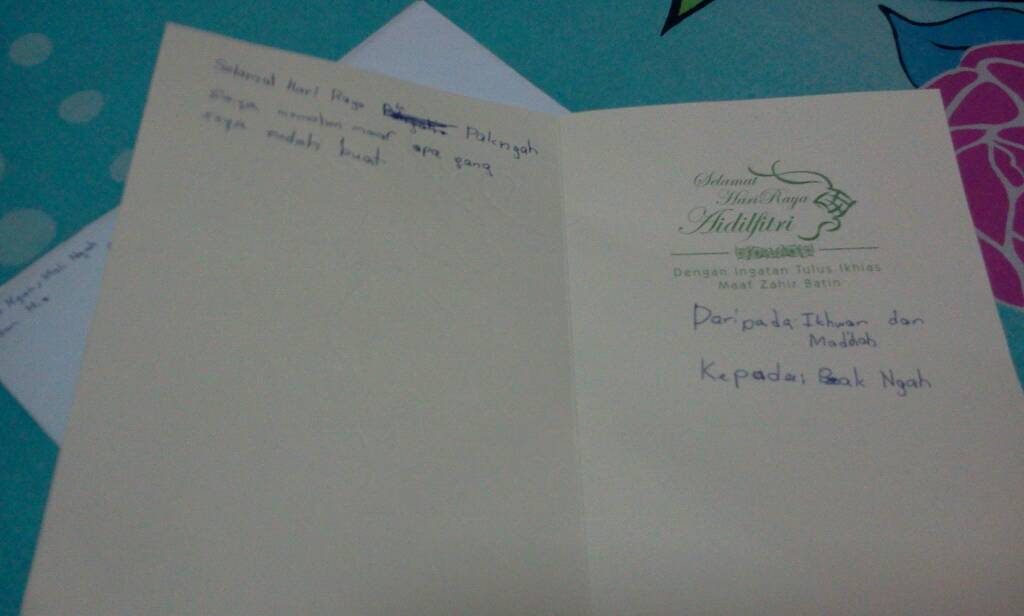 Selamat Hari Raya Pakngah
Saya memohon maaf apa yang
saya sudah buat.
Selamat
Hari Raya
Aidilfitri
Dengan Ingatan Tulus Ikhlas
Maaf Zahir Batin
Daripada Ikhwan dan
Maddiah
Kepada: Pak Ngah
Ngah, Mak Ngah